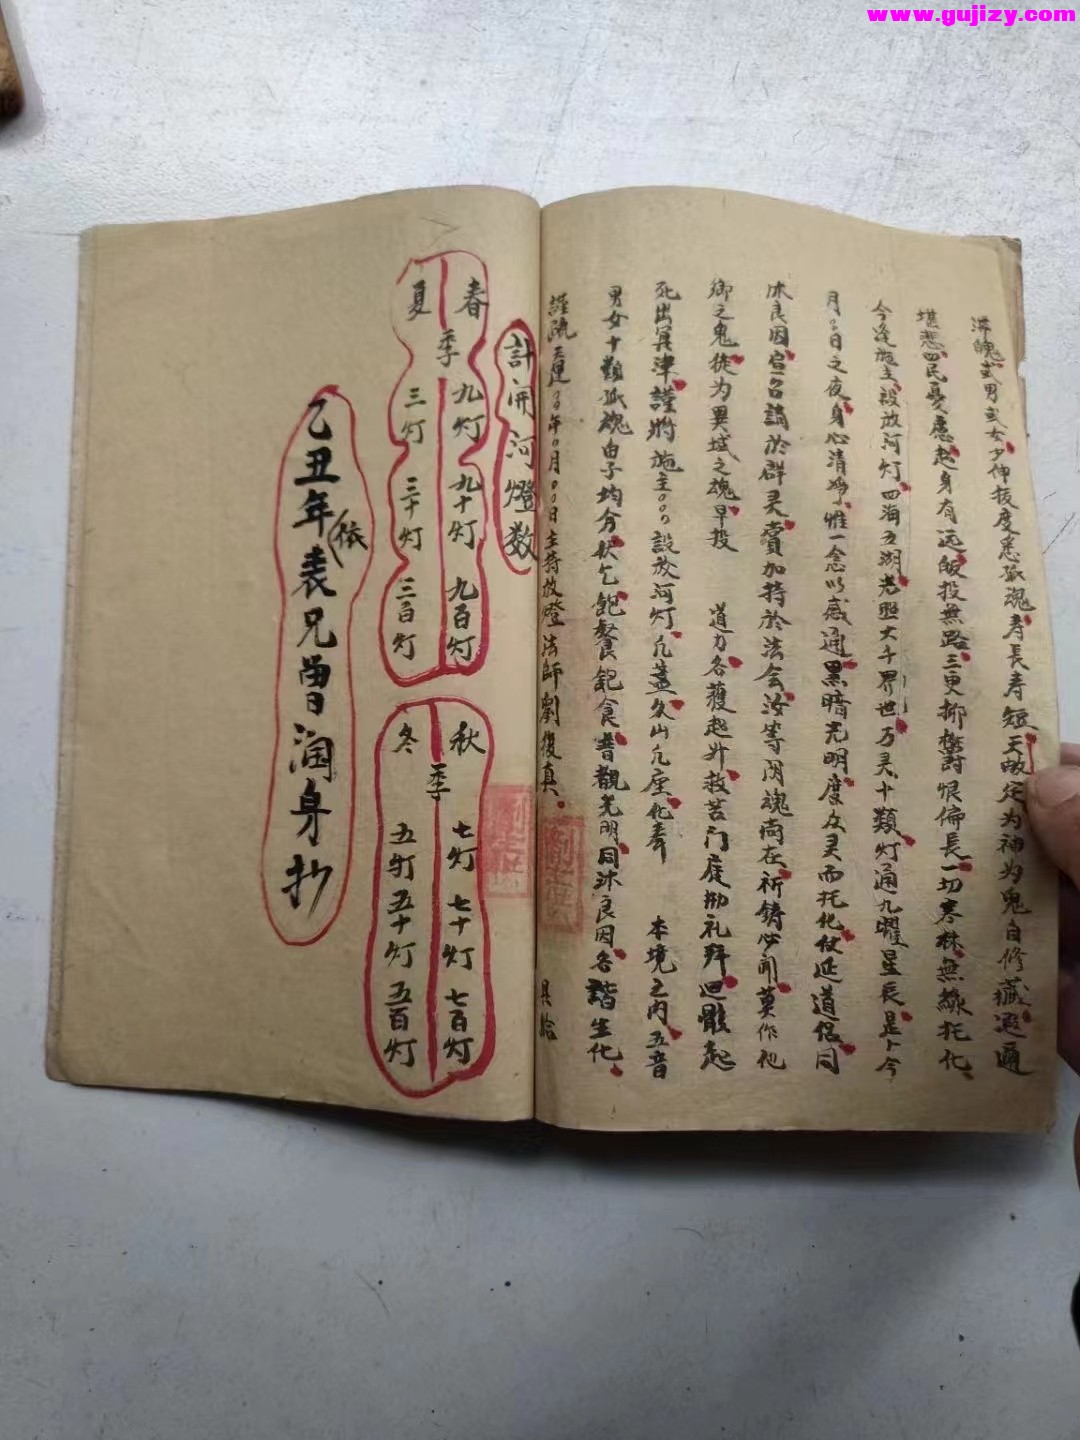 www.gujizy.com
滞魄或男或女少伸拔度悉孤魂寿長寿短天敢定为神为鬼自修藏遐通
堪悲四民憂慮起身有远皈投無路三更抑鬱恨偏長一切寒林無緣托化
今逢施主設放河灯四海五湖光照大千界世万灵十類灯通九耀星辰是卜今
月〇日之夜身心清净惟一念以感通黑暗光明度众灵而托化仗延道侣同
沐良因宣召請於群灵賞加持於法会汝等阴魂尚在祈鋳必闻莫作他
鄉之鬼徒为異域之魂早投 道力各獲起升救苦门庭勅礼拜迴骸起
死出冥津謹將施主〇〇〇設放河灯几盏久山几座化奉 本境之内五音
男女十類孤魂由子均分伏乞飽餐飽食書觀光明同沐良因各諧生化
謹疏 天運〇〇年〇月〇〇日主持放燈法師劉復真 具拾
計開河燈数
春 季 九灯 九十灯 九百灯
夏 三灯 三十灯 三百灯
秋 季 七灯 七十灯 七百灯
冬 五灯 五十灯 五百灯
乙丑年依表兄曾润身抄